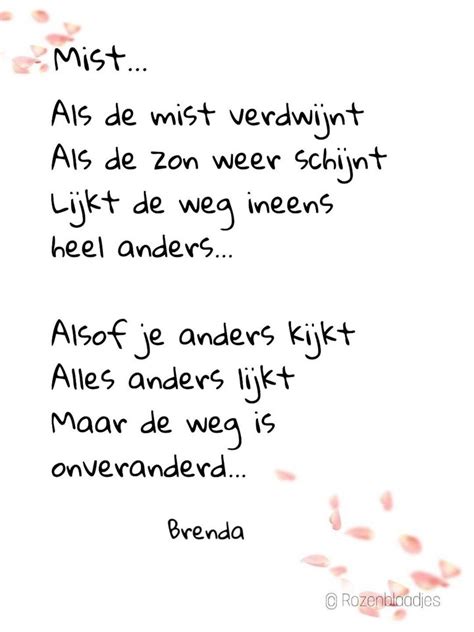 Mist...
Als de mist verdwijnt
Als de zon weer schijnt
Lijkt de weg ineens
heel anders...
Alsof je anders kijkt
Alles anders lijkt
Maar de weg is
onveranderd...
Brenda
© Rozenblaadjes